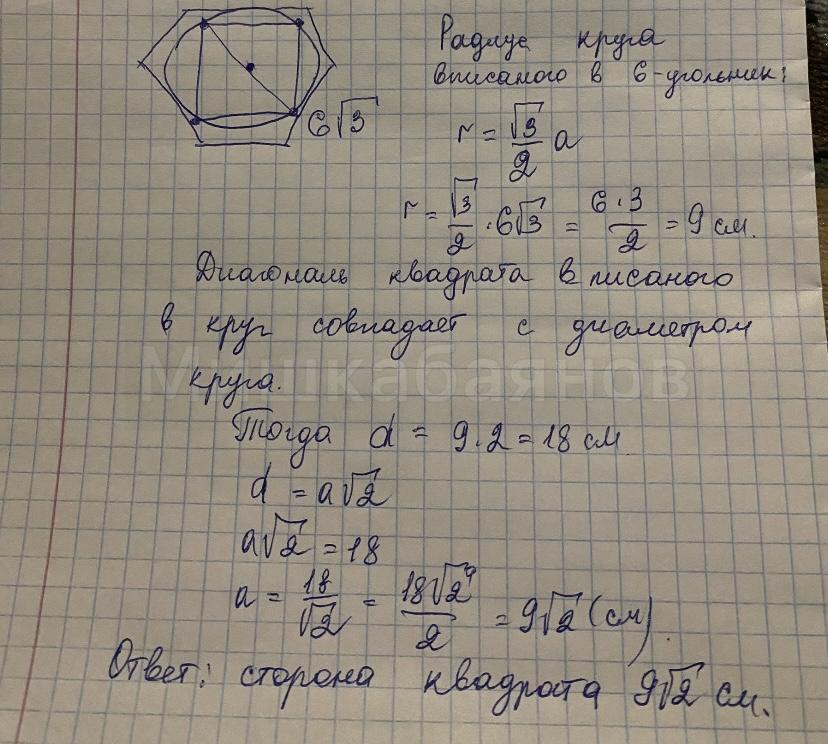 6√3
Радиус круга
вписаного в 6-угольник:
r = √3/2 a
r = √3/2 · 6√3 = 6·3/2 = 9 см.
Диагональ квадрата вписаного
в круг совпадает с диаметром
круга.
Мишкабаянов
Тогда d = 9·2 = 18 см
d = a√2
a√2 = 18
a = 18/√2 = 18√2/2 = 9√2 (см).
Ответ: сторона квадрата 9√2 см.